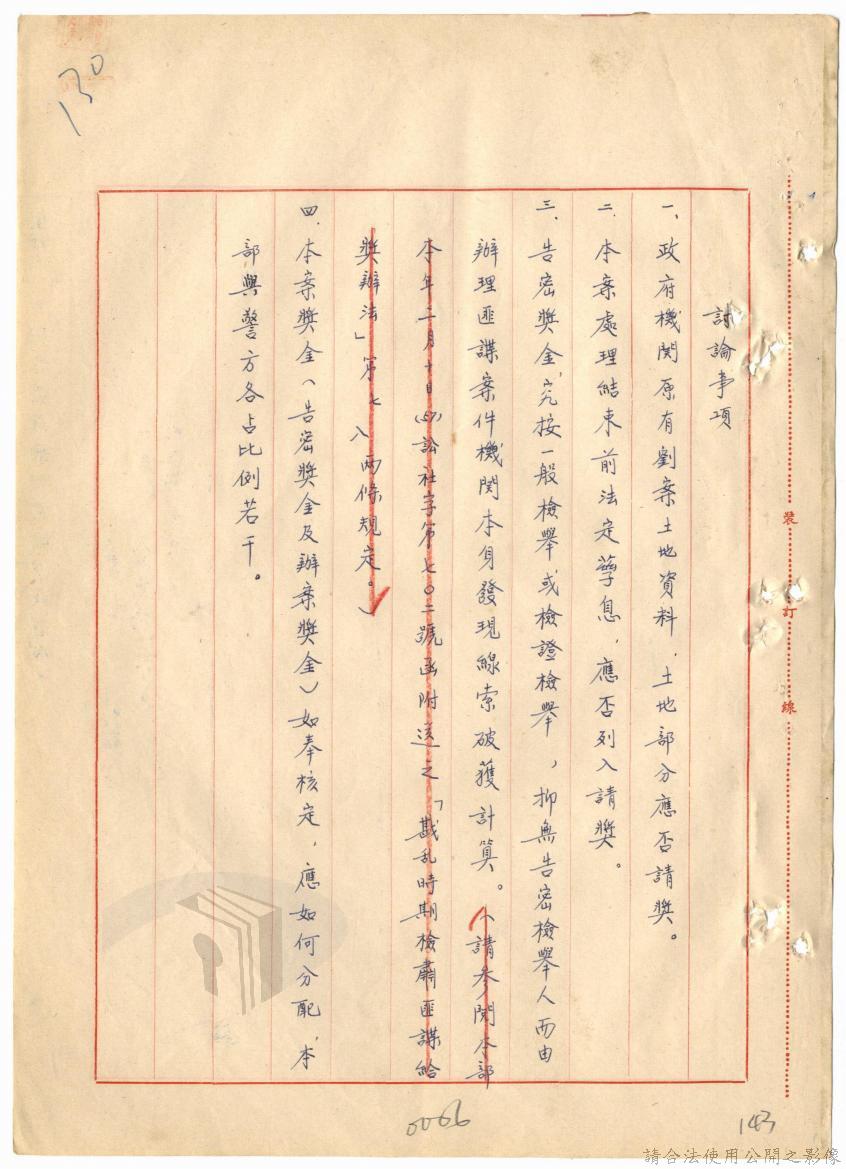 130
討論事項
一、政府機関原有劉案土地資料，土地部分應否請獎。
二、本案處理結束前法定孳息，應否列入請獎。
三、告密獎金，究按一般檢舉或檢證檢舉，抑無告密檢舉人而由
辦理匪諜案件機関本身發現線索破獲計算。（請參閱本部
本年二月十日(57)訟社字第七〇二號函附送之「戡乱時期檢肅匪諜給
獎辦法」第七八兩條規定。）
四、本案獎金（告密獎金及辦案獎金）如奉核定，應如何分配，本
部與警方各占比例若干。
裝
訂
線
0066
143
請合法使用公開之影像